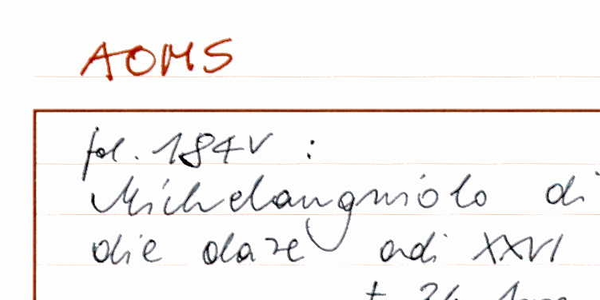 AOMS
fol. 184V :
Michelangniolo di
die dare adi XXVI